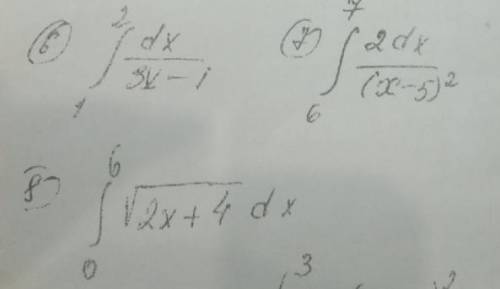 6) ∫₁² dx/(3x-1) 7) ∫₆⁷ 2dx/(x-5)²
8) ∫₀⁶ √(2x+4) dx
3 2